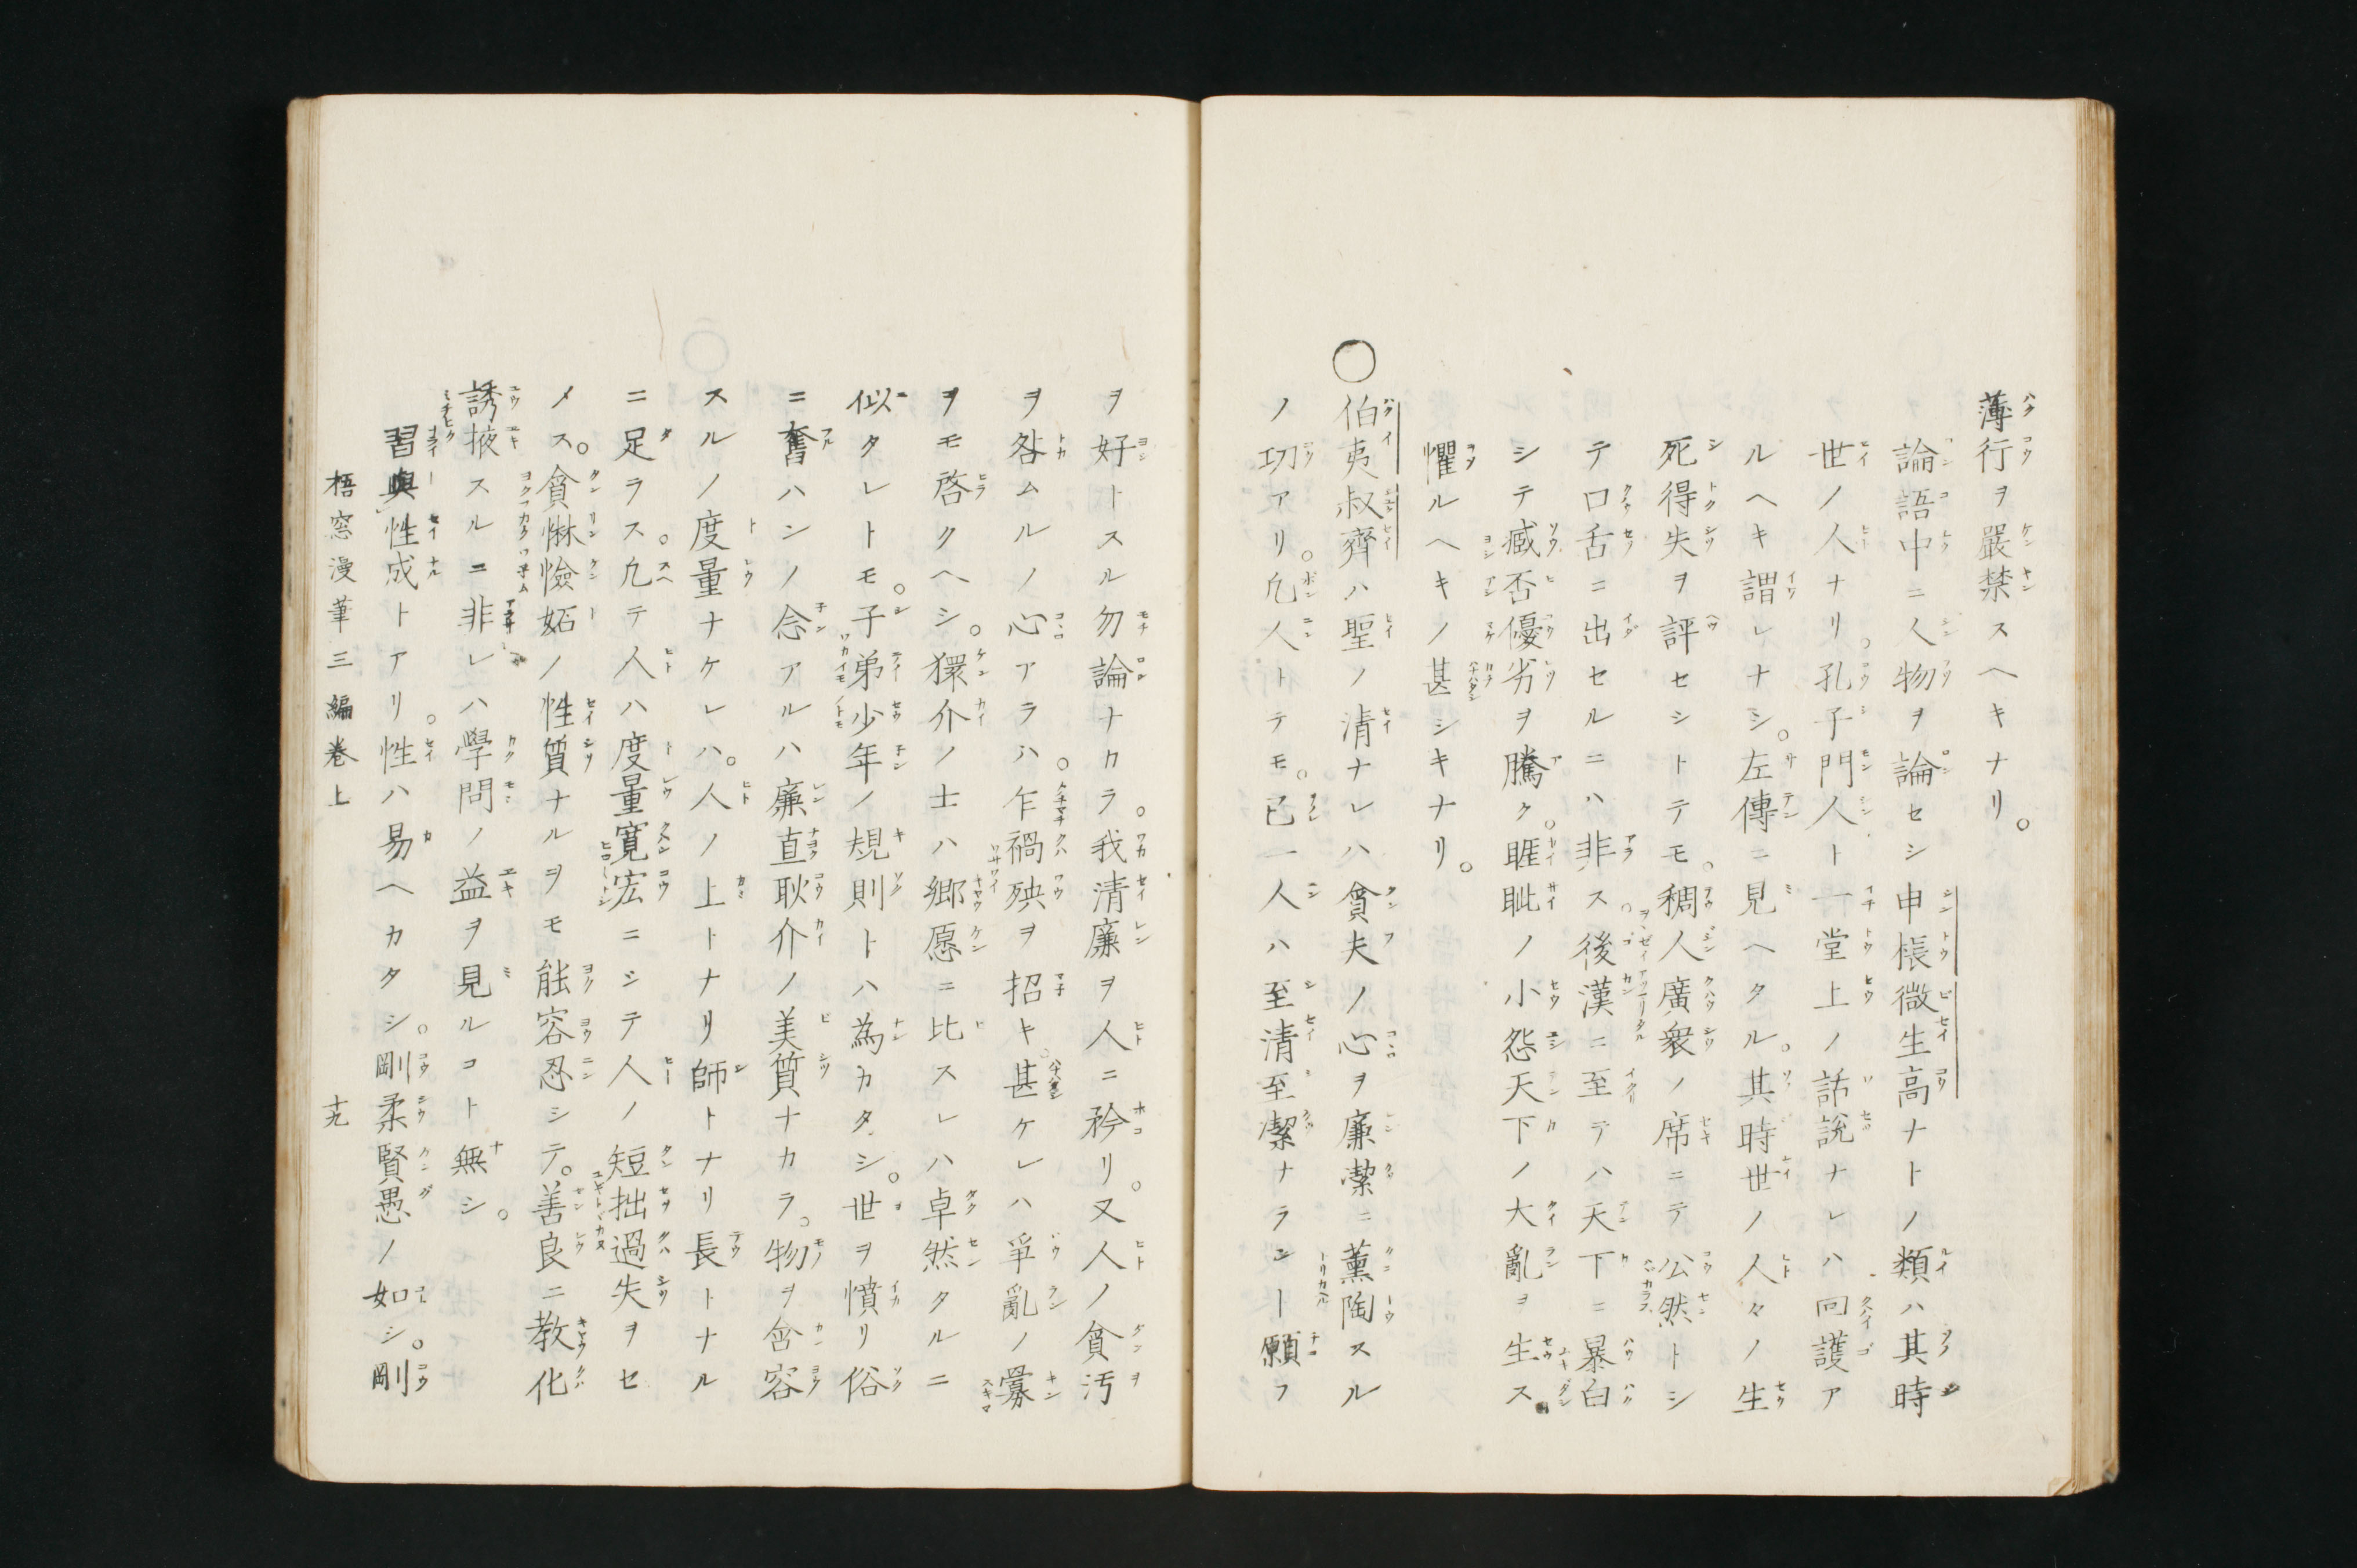 薄行ヲ嚴禁スヘキナリ。
論語中ニ人物ヲ論セシ申棖微生高ナトノ類ハ其時
世ノ人ナリ。孔子門人ト一堂上ノ話説ナレハ回護ア
ルヘキ謂レナシ。左傳ニ見ヘタル。其時世ノ人々ノ生
死得失ヲ評セシトテモ。稠人廣衆ノ席ニテ公然トシ
テ口舌ニ出セルニハ非ス。後漢ニ至テハ天下ニ暴白
シテ臧否優劣ヲ騰ク。睚眦ノ小怨天下ノ大亂ヲ生ス
懼ルヘキノ甚シキナリ。
○伯夷叔齊ハ聖ノ清ナレハ貪夫ノ心ヲ廉潔ニ薫陶スル
ノ功アリ。凢人トテモ。已一人ハ至清至潔ナランー願フ
ヲ好トスル勿論ナカラ。我清廉ヲ人ニ矜リ。又人ノ貪汚
ヲ咎ムルノ心アラハ。乍禍殃ヲ招キ甚ケレハ爭亂ノ釁
ヲモ啓クヘシ。獧介ノ士ハ郷愿ニ比スレハ卓然タルニ
似タレトモ。子弟少年ノ規則トハ為カタシ。世ヲ憤リ俗
ニ奮ハンノ念アルハ廉直耿介ノ美質ナカラ。物ヲ含容
スルノ度量ナケレハ。人ノ上トナリ師トナリ長トナル
ニ足ラス。凢テ人ハ度量寛宏ニシテ人ノ短拙過失ヲセ
メス。貪惏憸妬ノ性質ナルヲモ能容忍シテ。善良ニ教化
誘掖スルニ非レハ學問ノ益ヲ見ルコト無シ。
習與性成トアリ。性ハ易ヘカタシ。剛柔賢愚ノ如シ。剛
梧窓漫筆三編卷上　十九